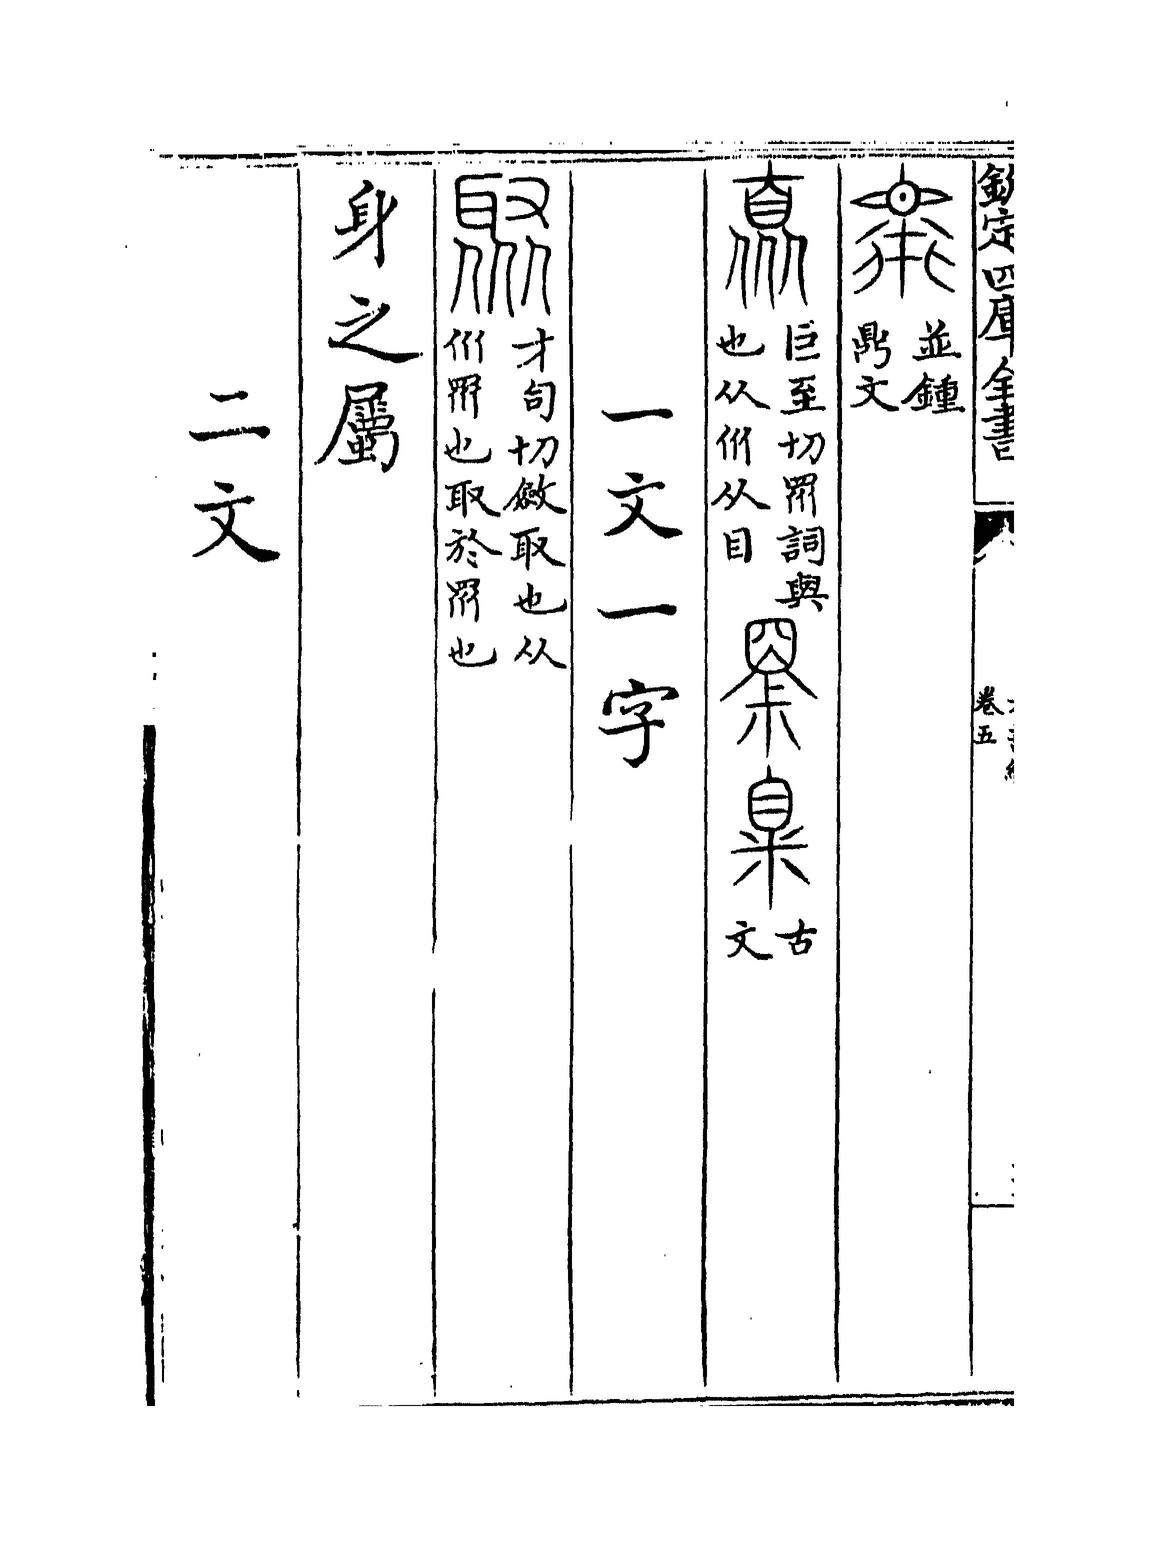 欽定四庫全書
卷五
並鍾鼎文
巨至切眾詞與也从㐺从目
古文
一文一字
才句切斂取也从㐺眾也取於眾也
身之屬
二文